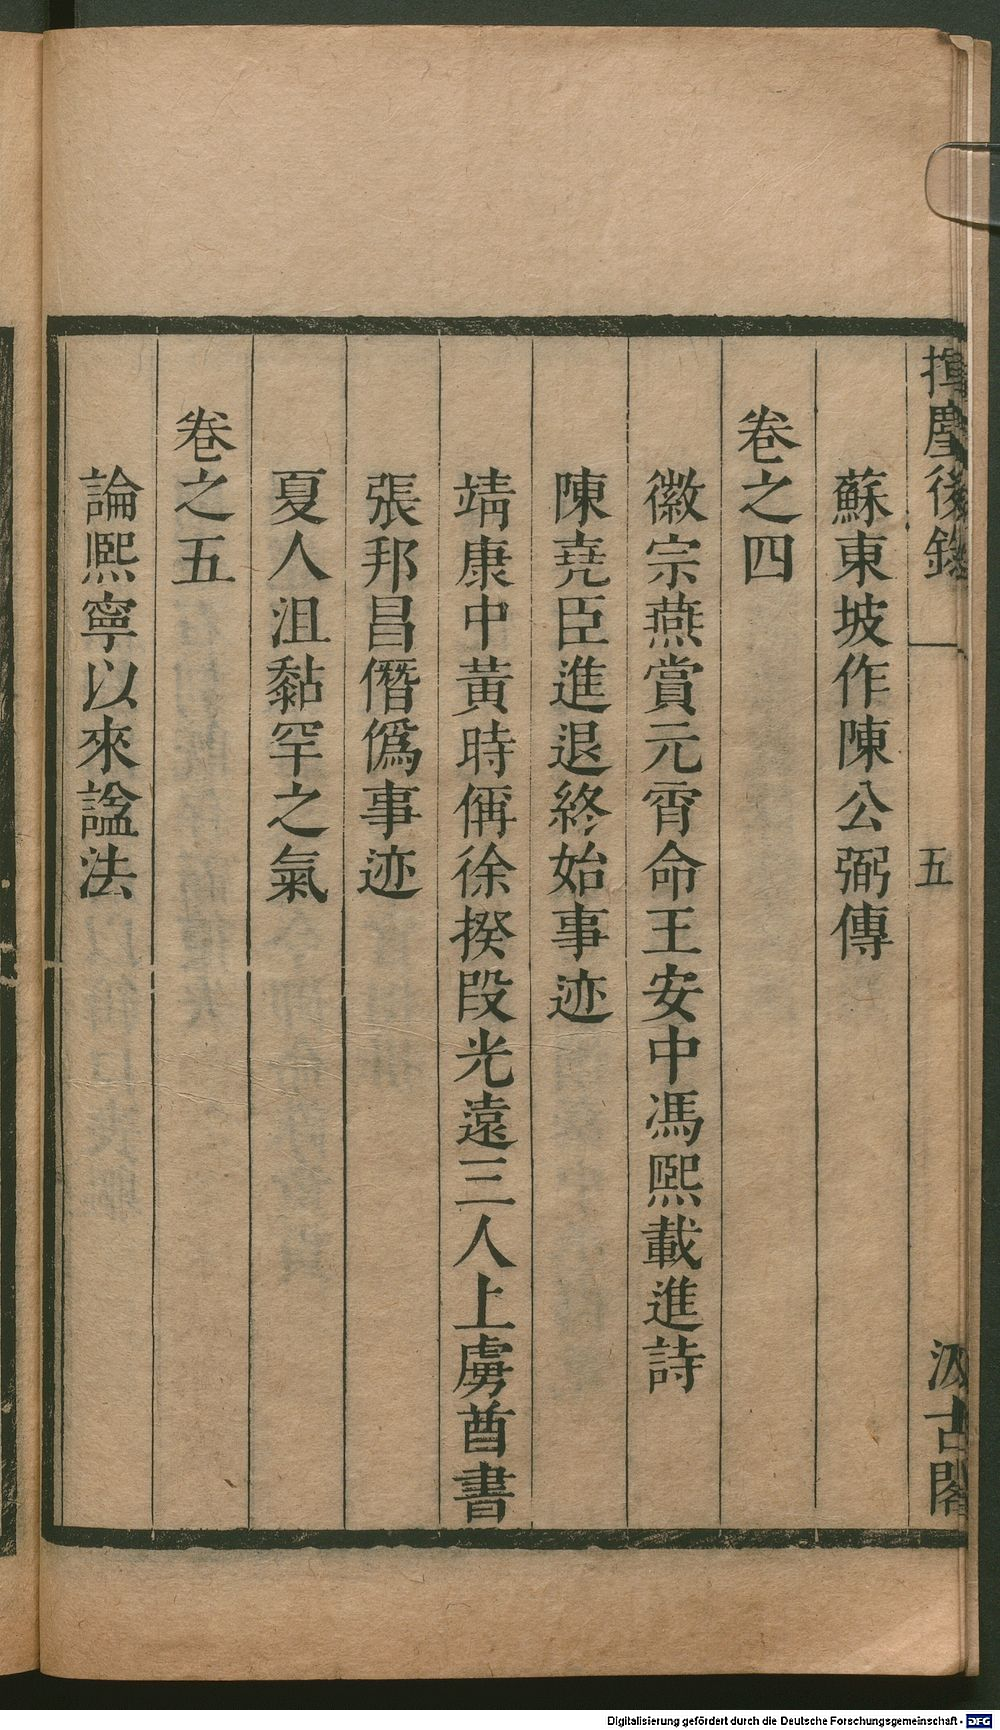 揮麈後錄 五 汲古閣
蘇東坡作陳公弼傳
卷之四
徽宗燕賞元宵命王安中馮熙載進詩
陳堯臣進退終始事迹
靖康中黃時偁徐揆段光遠三人上虜酋書
張邦昌僭僞事迹
夏人沮黏罕之氣
卷之五
論熙寧以來謚法
Digitalisierung gefördert durch die Deutsche Forschungsgemeinschaft - DFG